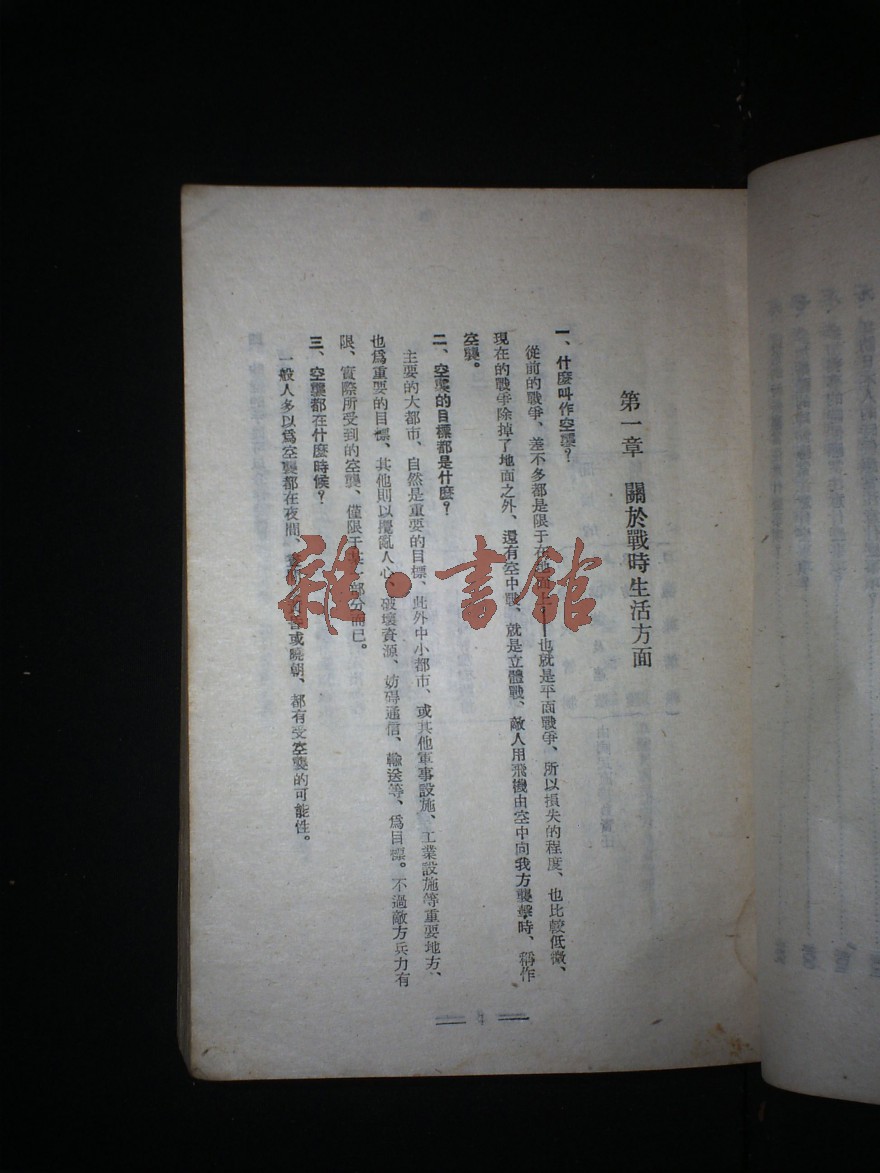 第一章　關於戰時生活方面
一、什麼叫作空襲？
從前的戰爭、差不多都是限于在地面上——也就是平面戰爭、所以損失的程度、也比較低微、
現在的戰爭除掉了地面之外、還有空中戰、就是立體戰、敵人用飛機由空中向我方襲擊時、稱作
空襲。
二、空襲的目標都是什麼？
主要的大都市、自然是重要的目標、此外中小都市、或其他軍事設施、工業設施等重要地方、
也爲重要的目標、其他則以擾亂人心、破壞資源、妨碍通信、輸送等、爲目標。不過敵方兵力有
限、實際所受到的空襲、僅限于其一部分而已。
三、空襲都在什麼時候？
一般人多以爲空襲都在夜間、或曉朝、都有受空襲的可能性。
雜·書館